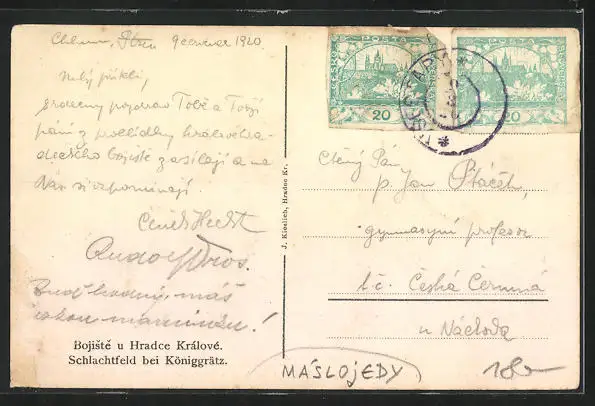 Chlum, 9 červenec 1920
Milý příteli,
srdečný pozdrav Tobě a Tvojí
paní z prohlídky královéhra-
deckého bojiště zasílají a na
Vás si vzpomínají
Čeněk Hecht
Rudolf Dros.
Buď hodný, máš
hodnou maminku!
Bojiště u Hradce Králové.
Schlachtfeld bei Königgrätz.
J. Kieslich, Hradec Kr.
POŠTA
ČESKO
20
POŠTA
20
Ctěný Pán
p. Jan Ptáček,
gymnasijní profesor
t.č. Česká Čermná
u Náchoda
MÁSLOJEDY
180-